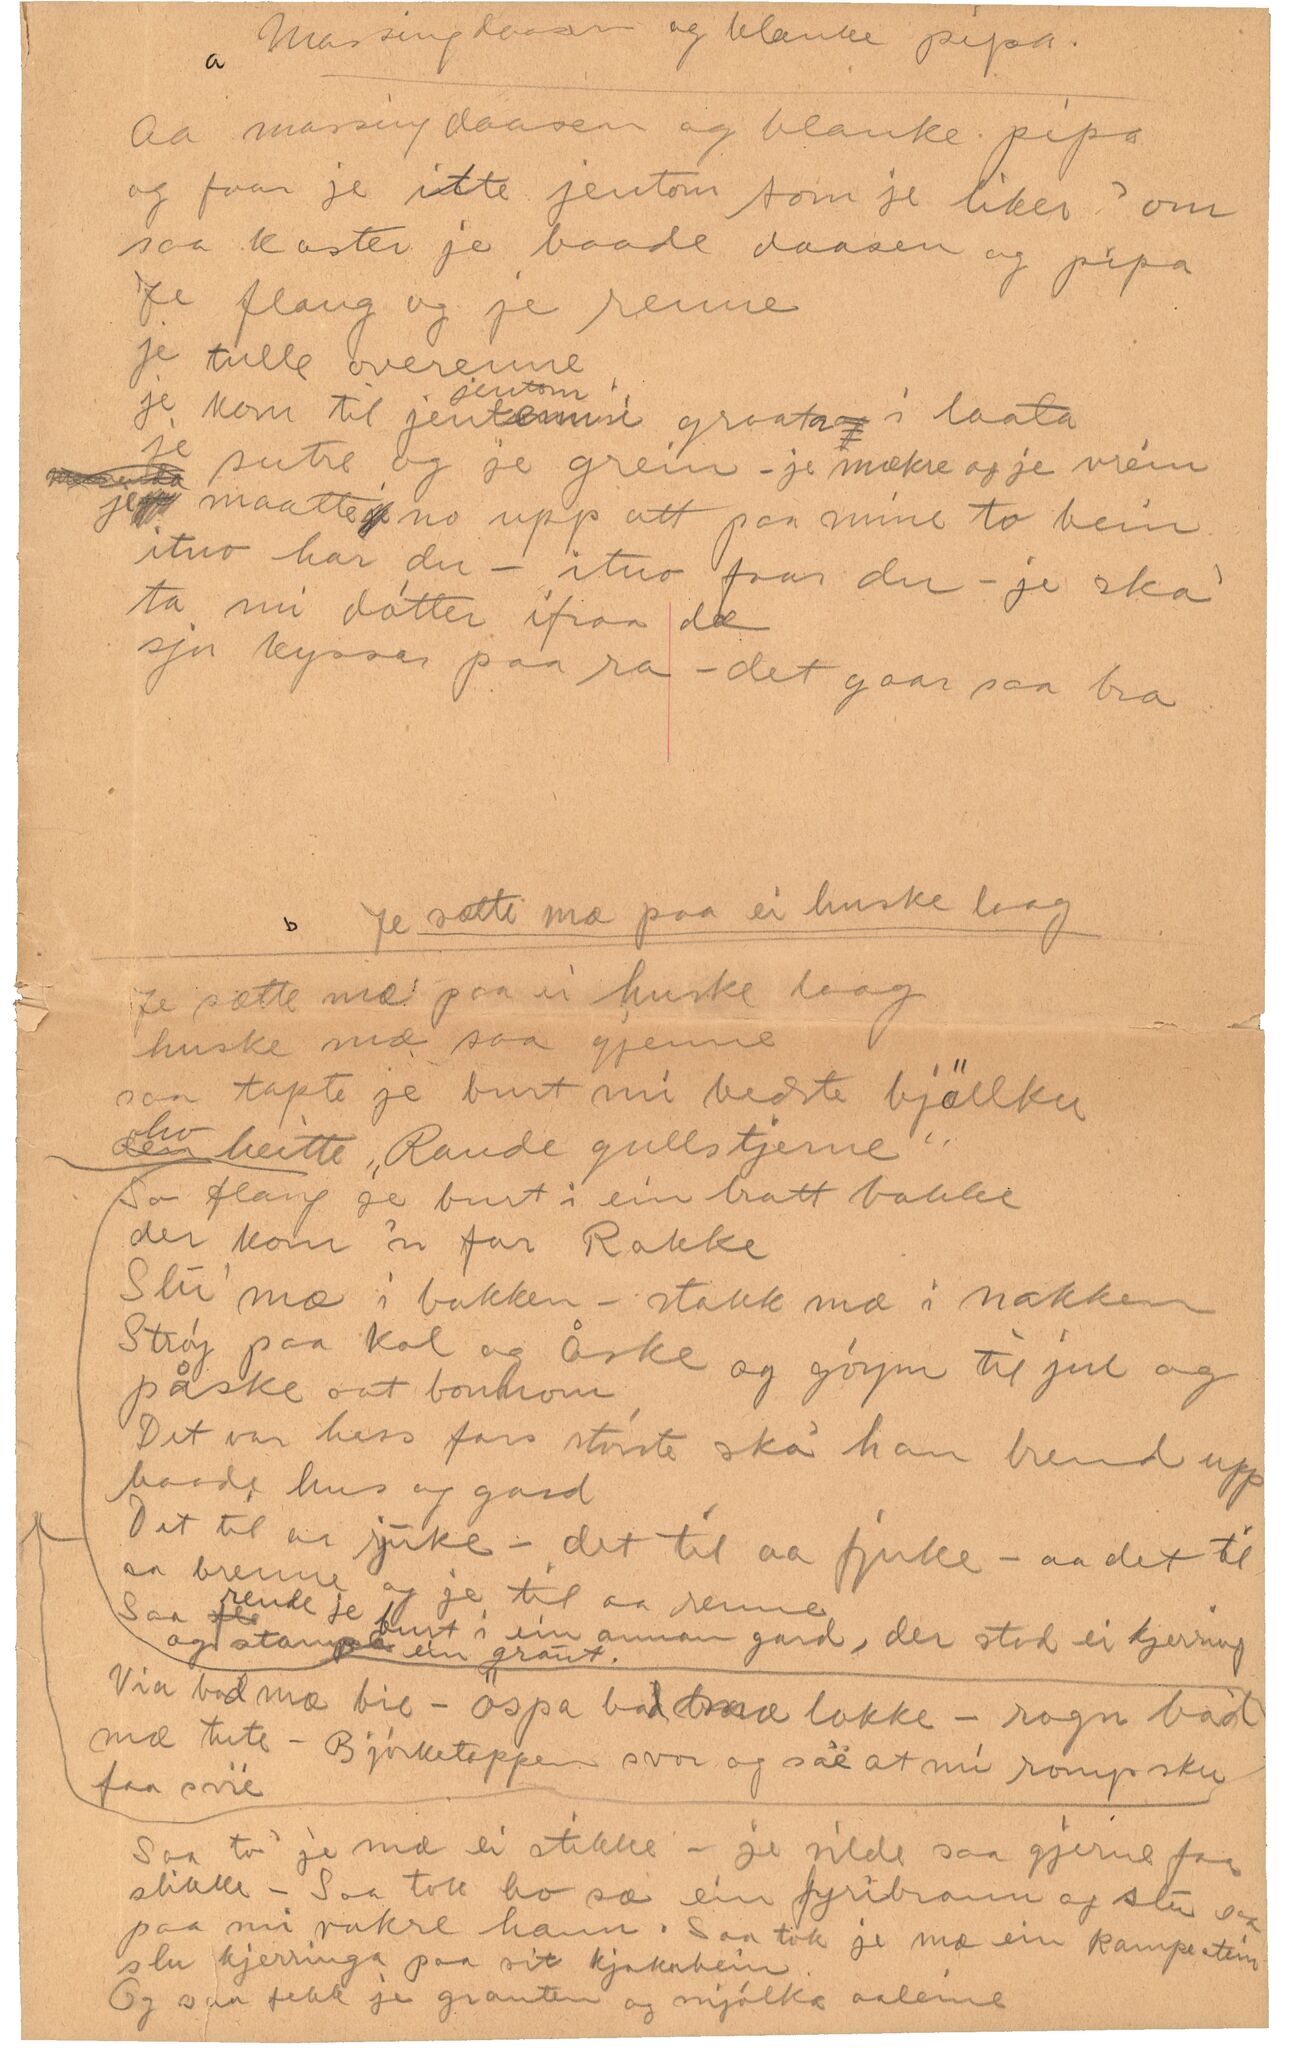 a Massingdaasen og blanke pipa.
Aa massingdaasen og blanke pipa
og faar je itte jentom som je liker 'om
saa kaster je baade daasen og pipa
Je flang og je renne
je tulle overenne
jentom
je kom til i graata i laata
je sutre og je grein - je mækre og je vrein
je maatte no upp att paa mine to bein
itno har du - itno faar du - je ska'
ta mi dótter ifraa dæ
sjn kyssar paa ra - det gaar saa bra
b Je sætte mæ paa ei huske laag
Je sætte mæ paa ei huske laag
huske mæ saa gjenne
saa tapte je burt mi bedste bjöllku
ho
den heitte „Rande gullstjerne"
Saa flang je burt i ein bratt bakke
der kom 'n far Rakke
Slu' mæ i bakken - stakk mæ i nakken
Strøj paa kol og Åske og góym til jul og
påske aat bonnom
Det var hess fars største ska' han brend upp
baade hus og gard
Det til aa rjuke - det til aa fjuke - aa det til
aa brenne og je til aa renne
Saa rende je burt i ein annan gard, der stod ei kjerring
og stampa ein graut.
Via bad mæ bie - öspa bad mæ lokke - rogn bad
mæ tute - Bjórketoppen svor og sae at mi romp sku
faa svie
Saa to' je mæ ei stikke - je vilde saa gjerne faa
slikke - Saa tok ho sæ ein fyribrann og slu saa
paa mi vakre hann. Saa tok je mæ ein kampestein
slu kjerringa paa sit kjakabein.
Og saa fekk je grauten og mjólka aaleine